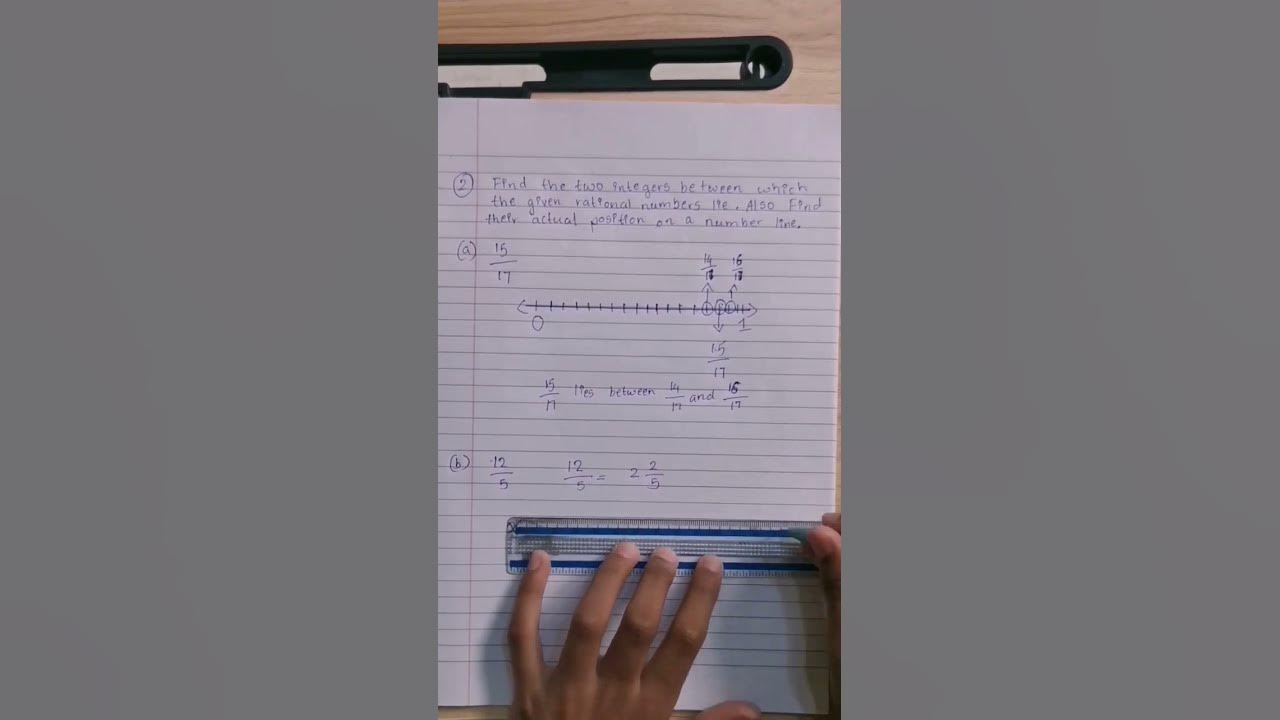 2 Find the two integers between which
the given rational numbers lie. Also Find
their actual position on a number line.
(a) 15/17
14/17 16/17
0 1
15/17
15/17 lies between 14/17 and 16/17
(b) 12/5 12/5 = 2 2/5